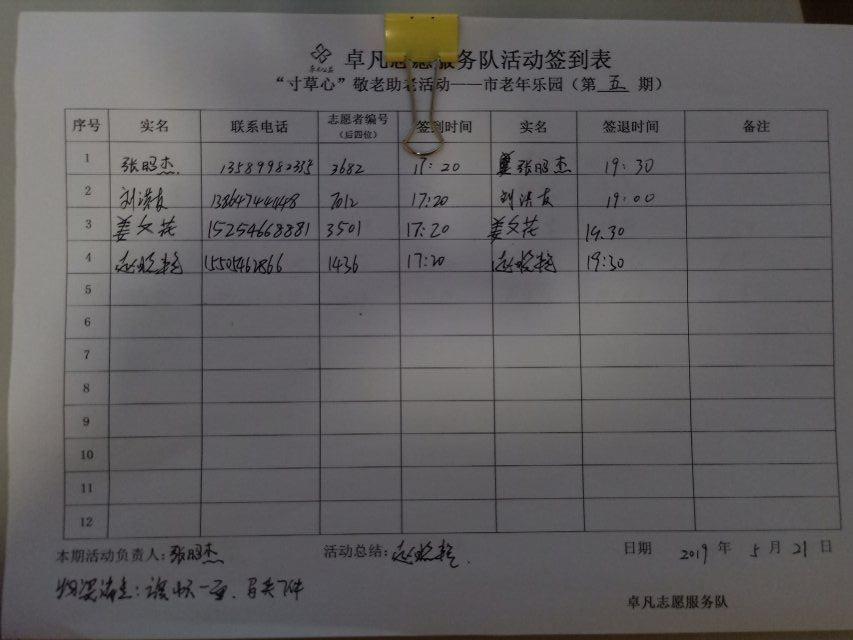 卓凡志愿服务队活动签到表
“寸草心”敬老助老活动——市老年乐园（第 五 期）
序号 实名 联系电话 志愿者编号（后四位） 签到时间 实名 签退时间 备注
1 张昭杰 3682 17:20 张昭杰 19:30
2 刘洪友 13864744448 7012 17:20 刘洪友 19:00
3 姜文花 15254668881 3501 17:20 姜文花 19.30
4 赵晓艳 15505462866 1436 17:20 赵晓艳 19:30
5
6
7
8
9
10
11
12
本期活动负责人：张昭杰 活动总结：赵晓艳 日期 2019 年 5 月 21 日
卓凡志愿服务队